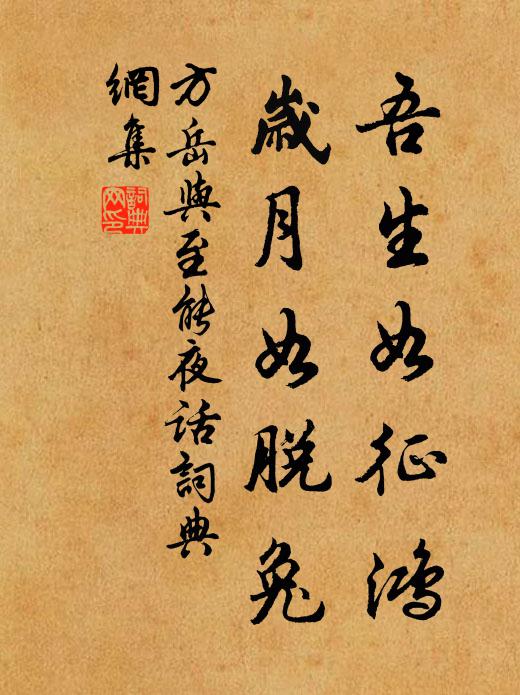 吾生如征鸿
歲月如脱兔
方岳與至能夜话詞典
網集
詞典
网印